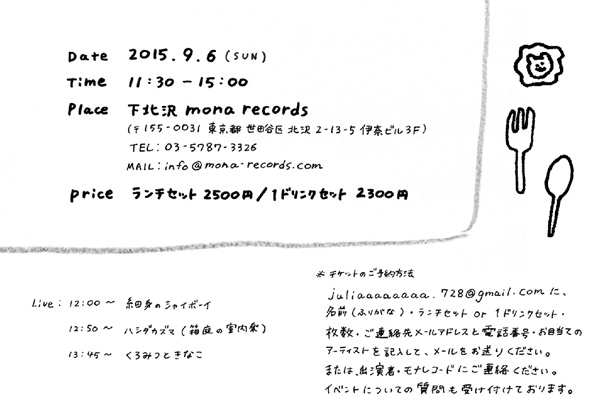 Date 2015.9.6 (SUN)
Time 11:30 - 15:00
Place 下北沢 mona records
(〒155-0031 東京都 世田谷区 北沢 2-13-5 伊奈ビル3F)
TEL: 03-5787-3326
MAIL: info@mona-records.com
price ランチセット 2500円 / 1ドリンクセット 2300円
Live: 12:00 〜 細身のシャイボーイ
12:50 〜 ハシダカズマ (箱庭の室内楽)
13:45 〜 くるみつときなこ
※ チケットのご予約方法
juliaaaaaaaa.728@gmail.com に、
名前 (ふりがな)・ランチセット or 1ドリンクセット・
枚数・ご連絡先メールアドレスと電話番号・お目当ての
アーティストを記入して、メールをお送りください。
または、出演者・モナレコードにご連絡ください。
イベントについての質問も受け付けております。